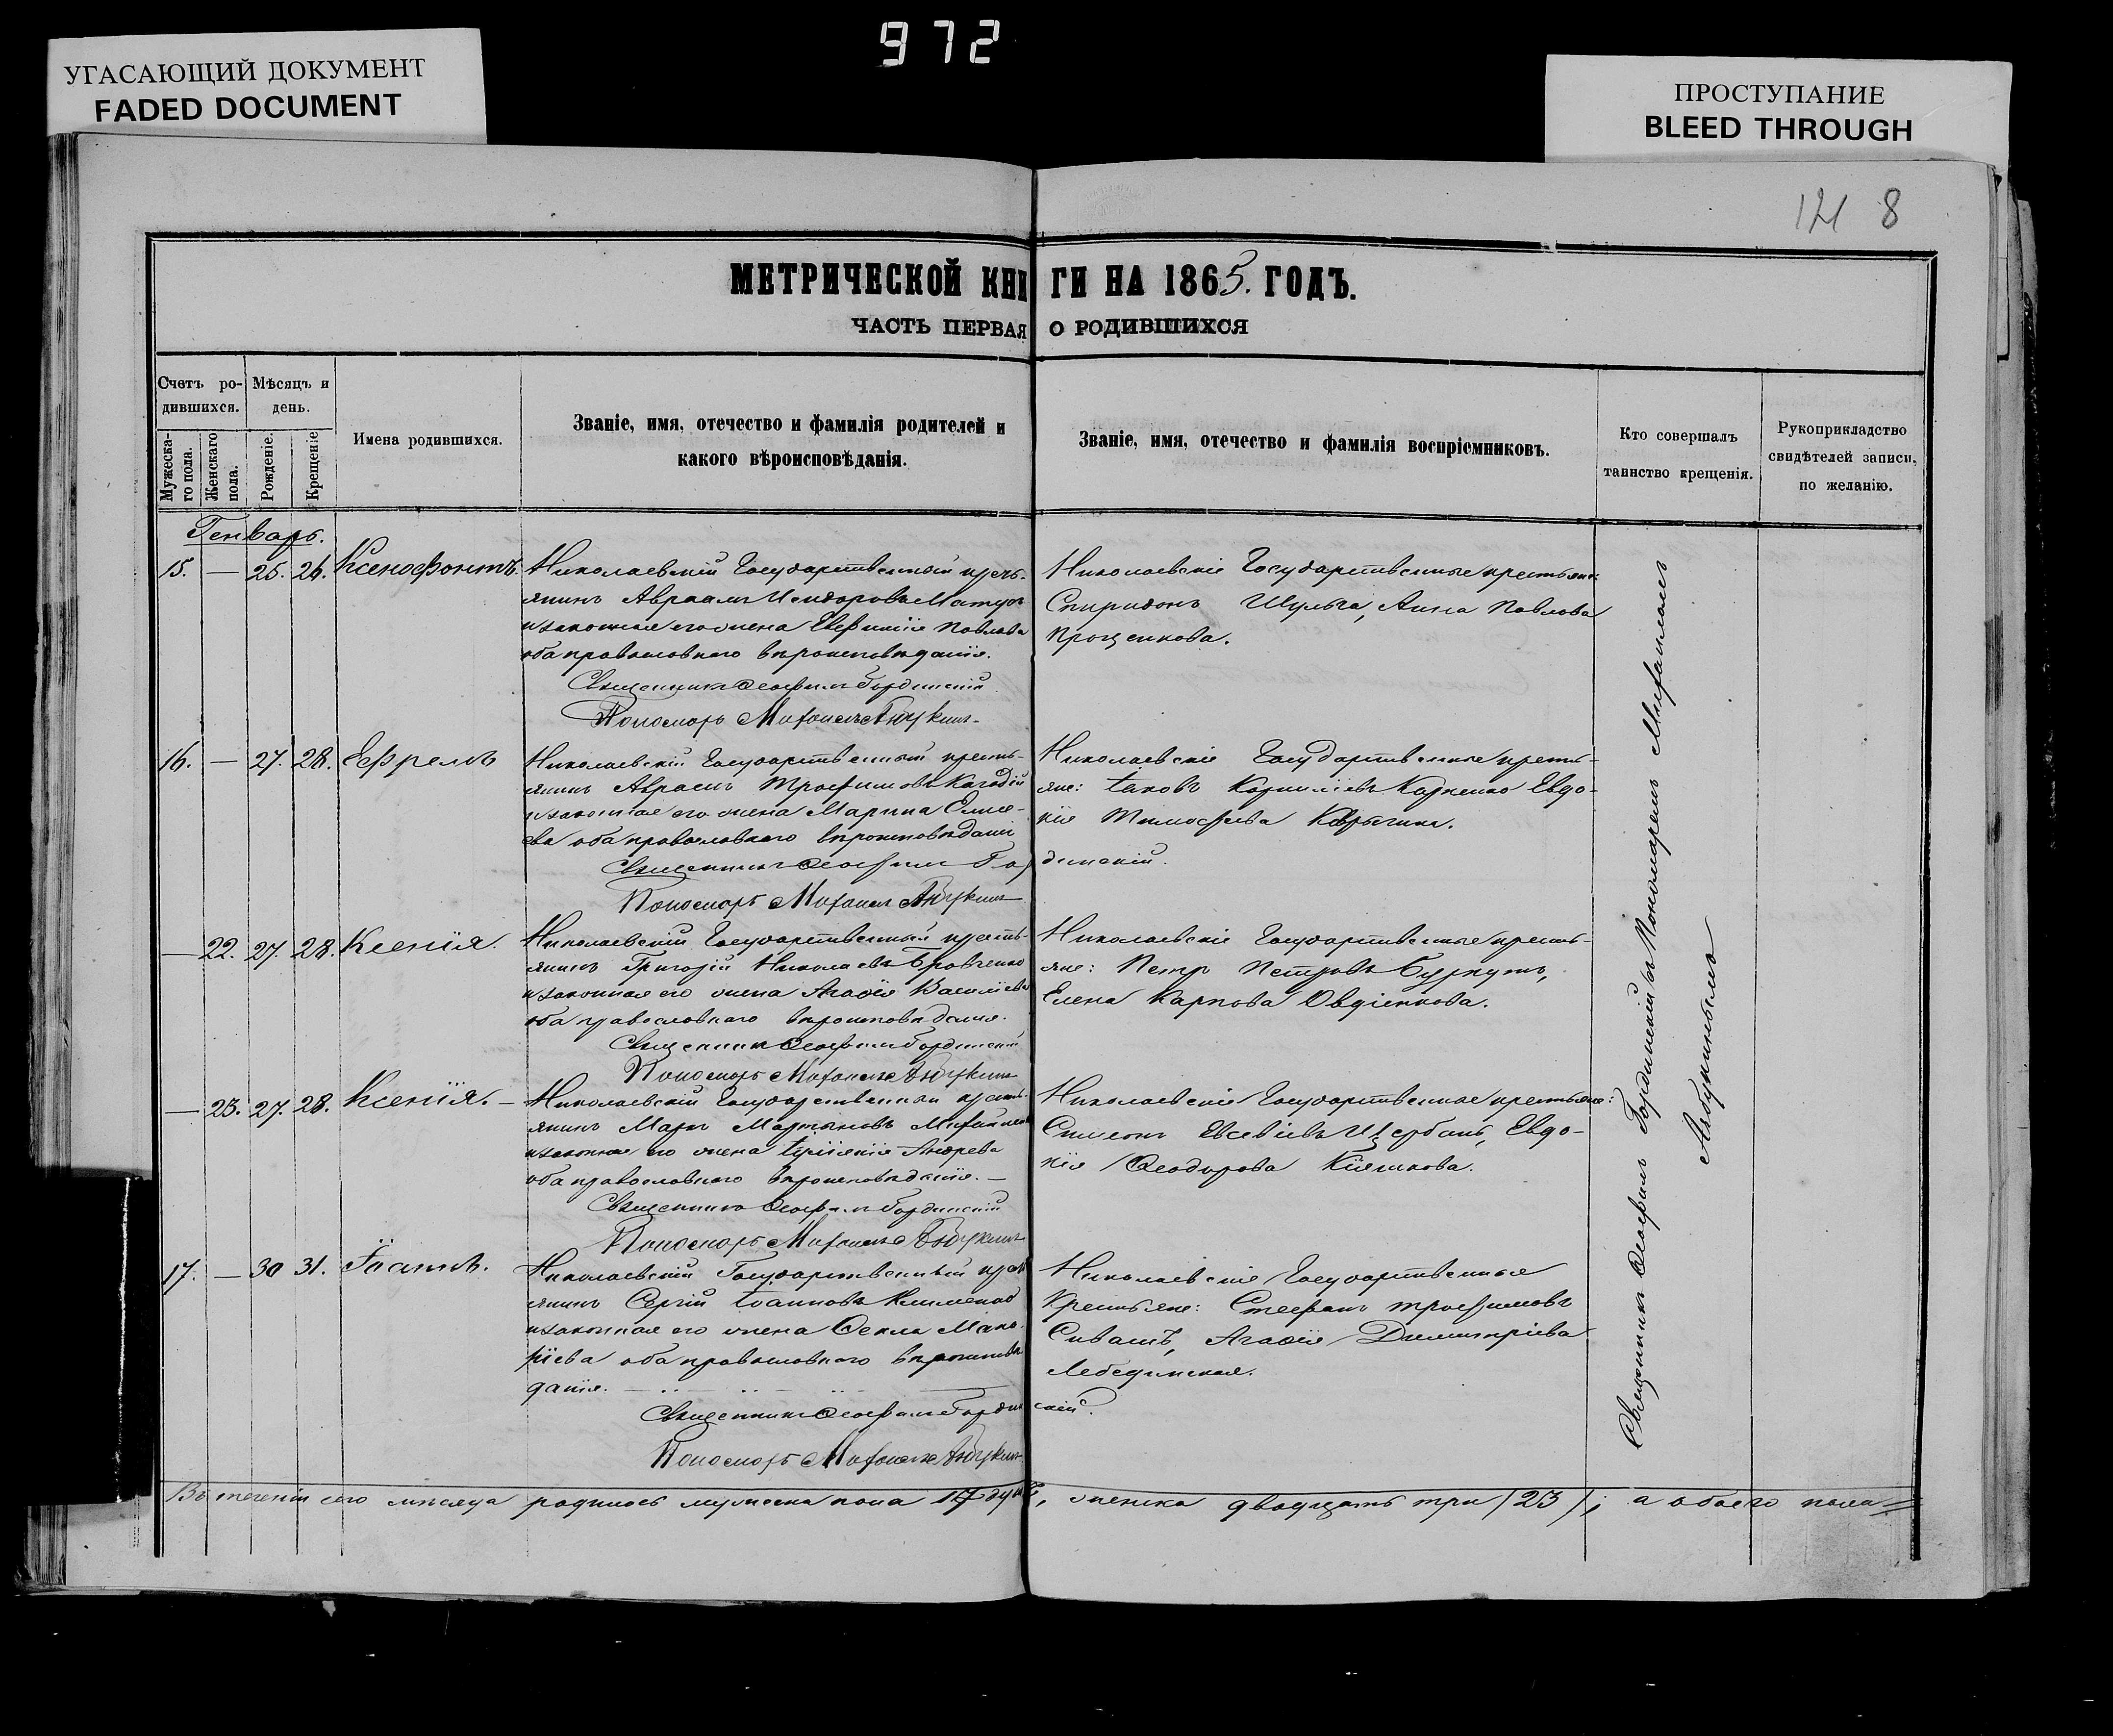 972
УГАСАЮЩИЙ ДОКУМЕНТ
FADED DOCUMENT
ПРОСТУПАНИЕ
BLEED THROUGH
121 8
МЕТРИЧЕСКОЙ КНИГИ НА 1865. ГОДЪ.
ЧАСТЬ ПЕРВАЯ О РОДИВШИХСЯ
Счетъ ро-
дившихся.
Мужеска-
го пола.
Женскаго
пола.
Мѣсяцъ и
день.
Рожденіе.
Крещеніе
Имена родившихся.
Званіе, имя, отечество и фамилія родителей и
какого вѣроисповѣданія.
Званіе, имя, отечество и фамилія воспріемниковъ.
Кто совершалъ
таинство крещенія.
Рукоприкладство
свидѣтелей записи,
по желанію.
Генварь.
15. — 25. 26. Ксенофонтъ.
Николаевскій Государственный кресть-
янинъ Авраамъ Исидоровъ
и законная его жена Евфимія Павлова
оба православнаго вѣроисповѣданія.
Священникъ Ѳеофилъ Гординскій
Пономарь Митрофанъ
Николаевскіе Государственные крестьяне:
Спиридонъ Шульга, Анна Павлова
Проценкова.
16. — 27. 28. Ефремъ
Николаевскій Государственный кресть-
янинъ Авраамъ Трофимовъ
и законная его жена Марина Елисе-
ева оба православнаго вѣроисповѣданія
Священникъ Ѳеофилъ Гординскій.
Пономарь
Николаевскіе Государственные кресть-
яне: Іаковъ Корниліевъ Карпенко Евдо-
кія Тимофеева
— 22. 27. 28. Ксенія.
Николаевскій Государственный кресть-
янинъ Григорій Николаевъ Бровченко
и законная его жена Агафія Василіева
оба православнаго вѣроисповѣданія.
Священникъ Ѳеофилъ Гординскій
Пономарь
Николаевскіе Государственные кресть-
яне: Петръ Петровъ
Елена Карпова Овдіенкова.
— 23. 27. 28. Ксенія. —
Николаевскій Государственный кресть-
янинъ Маркъ Мартыновъ
и законная его жена Андреева
оба православнаго вѣроисповѣданія. —
Священникъ Ѳеофилъ Гординскій
Пономарь
Николаевскіе Государственные крестьяне:
Симеонъ Евсевіевъ Щербань, Евдо-
кія Ѳеодорова Кіяшкова.
17. — 30 31. Іоаннъ.
Николаевскій Государственный кресть-
янинъ Сергій Іоанновъ Клименко
и законная его жена Ѳекла Мака-
ріева оба православнаго вѣроисповѣ-
данія.
Священникъ Ѳеофилъ Гординскій.
Пономарь
Николаевскіе Государственные
крестьяне: Стефанъ Трофимовъ
Сивашъ, Агафія Димитріева
Лебединская.
Священникъ Ѳеофилъ Гординскій съ Пономаремъ
Въ теченіи сего мѣсяца родилось мужеска пола 17 душъ, женска двадцать три /23/; а обоего пола =